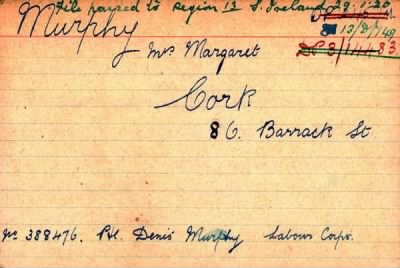 File passed to region 13 S. Ireland 29.1.20
Murphy
13/D/148
Mrs Margaret
DP 3/14483
Cork
86. Barrack St
No 388476. Pte. Denis Murphy Labour Corps.